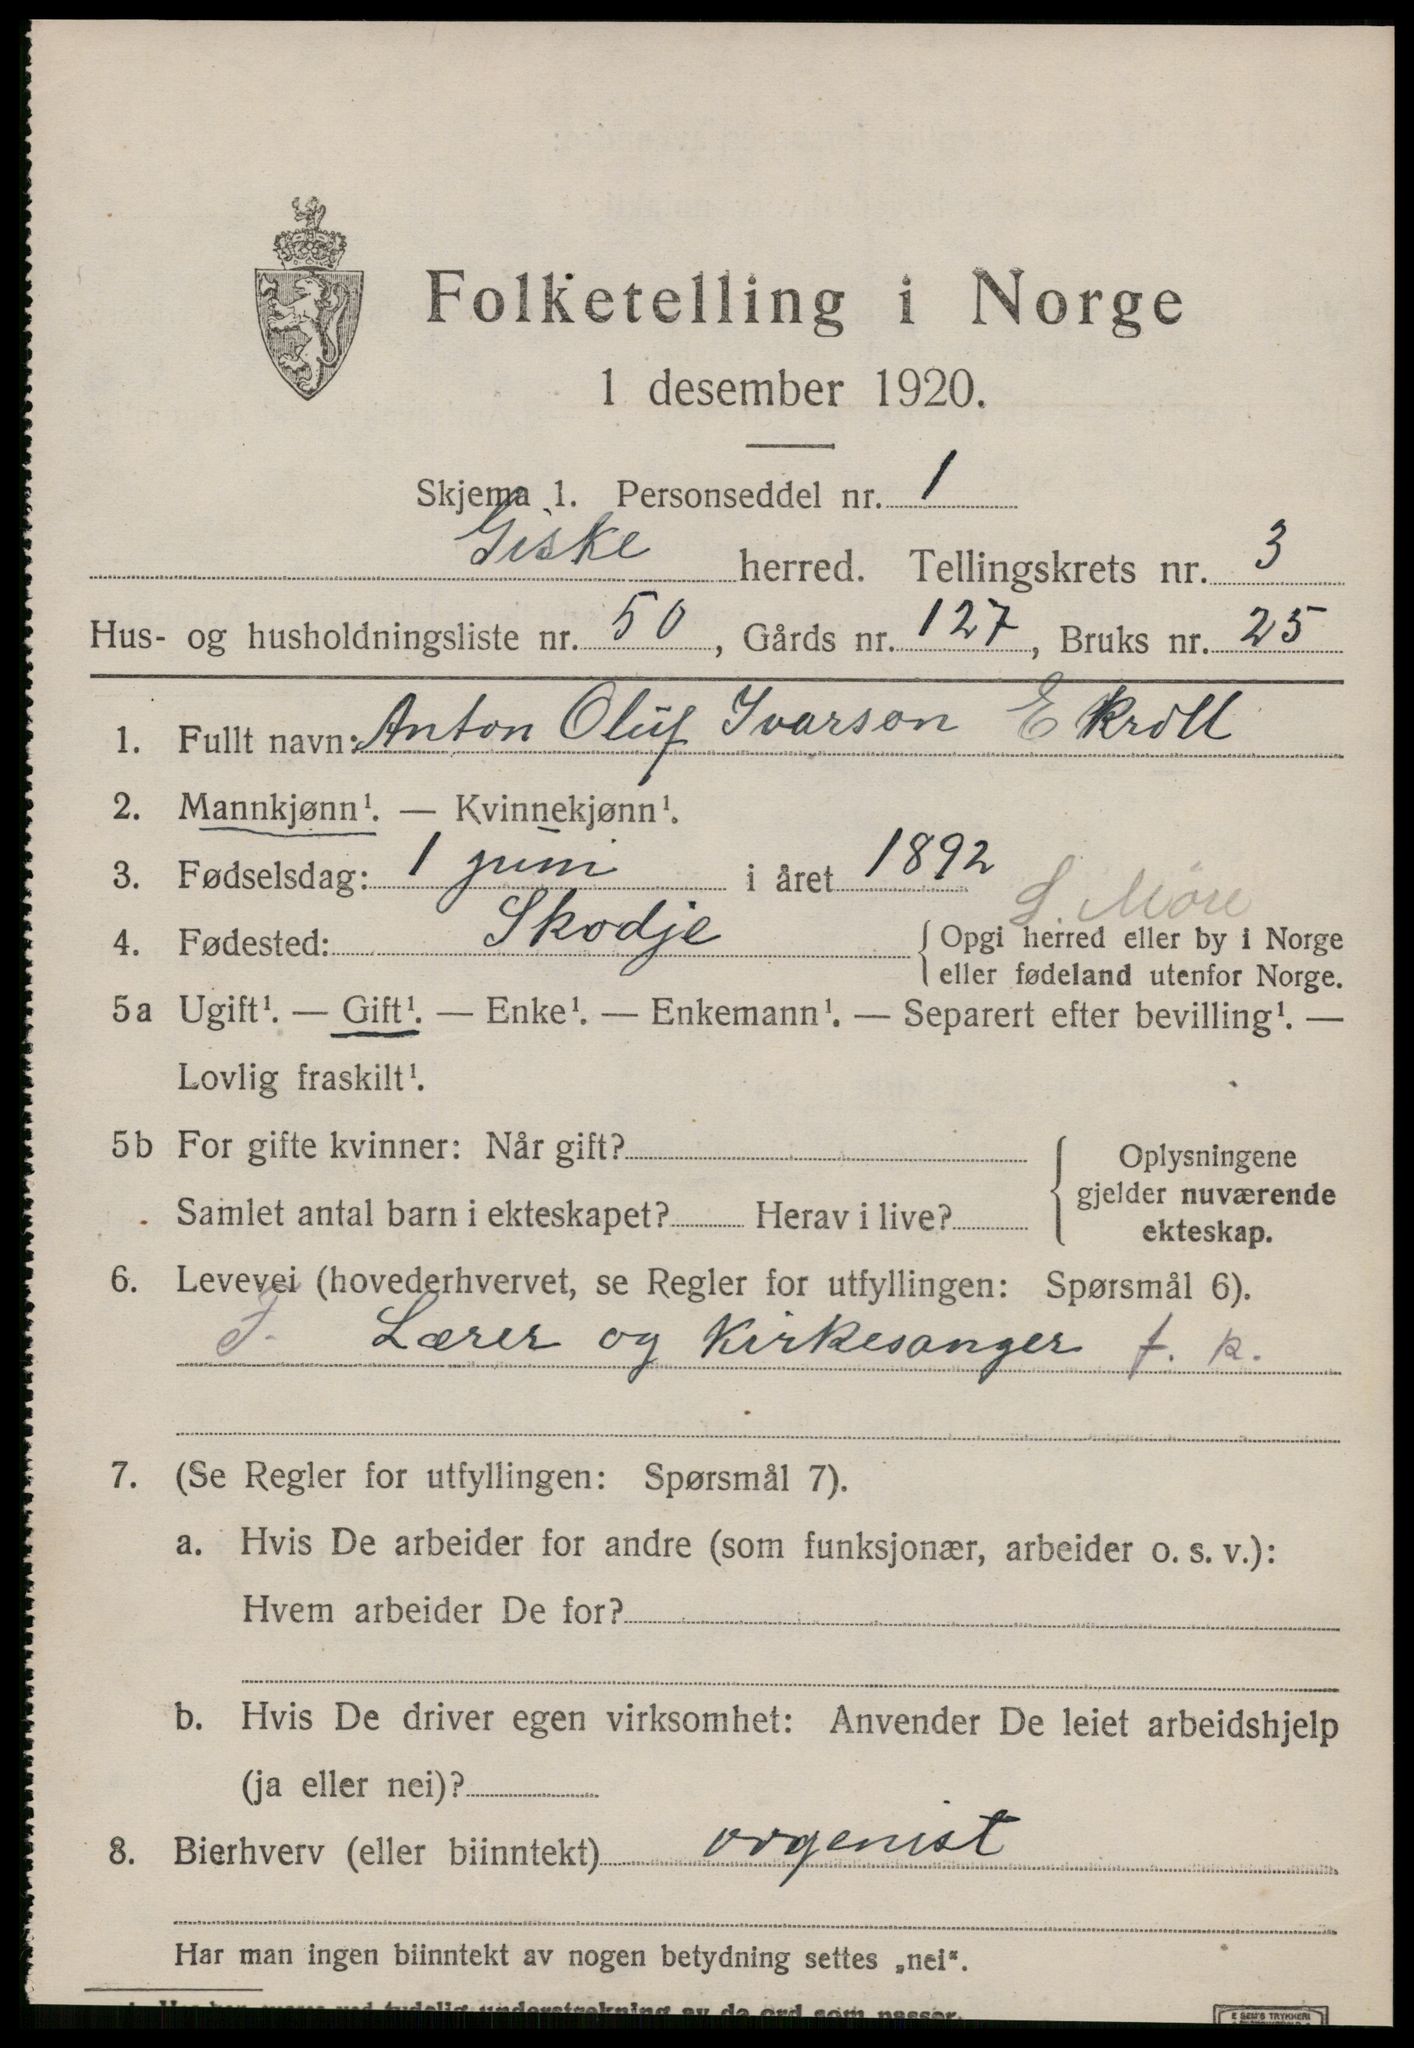 Folketelling i Norge
1 desember 1920.
Skjema 1. Personseddel nr. 1
Giske herred. Tellingskrets nr. 3
Hus- og husholdningsliste nr. 50, Gårds nr. 127, Bruks nr. 25
1. Fullt navn: Anton Oluf Ivarson Ekroll
2. Mannkjønn¹. — Kvinnekjønn¹.
3. Fødselsdag: 1 juni i året 1892
S. Møre
4. Fødested: Skodje {Opgi herred eller by i Norge
eller fødeland utenfor Norge.
5a Ugift¹. — Gift¹. — Enke¹. — Enkemann¹. — Separert efter bevilling¹. —
Lovlig fraskilt¹.
5b For gifte kvinner: Når gift? { Oplysningene
Samlet antal barn i ekteskapet? Herav i live? gjelder nuværende
ekteskap.
6. Levevei (hovederhvervet, se Regler for utfyllingen: Spørsmål 6).
Lærer og Kirkesanger f. k.
7. (Se Regler for utfyllingen: Spørsmål 7).
a. Hvis De arbeider for andre (som funksjonær, arbeider o. s. v.):
Hvem arbeider De for?
b. Hvis De driver egen virksomhet: Anvender De leiet arbeidshjelp
(ja eller nei)?
8. Bierhverv (eller biinntekt) orgenist
Har man ingen biinntekt av nogen betydning settes „nei“.